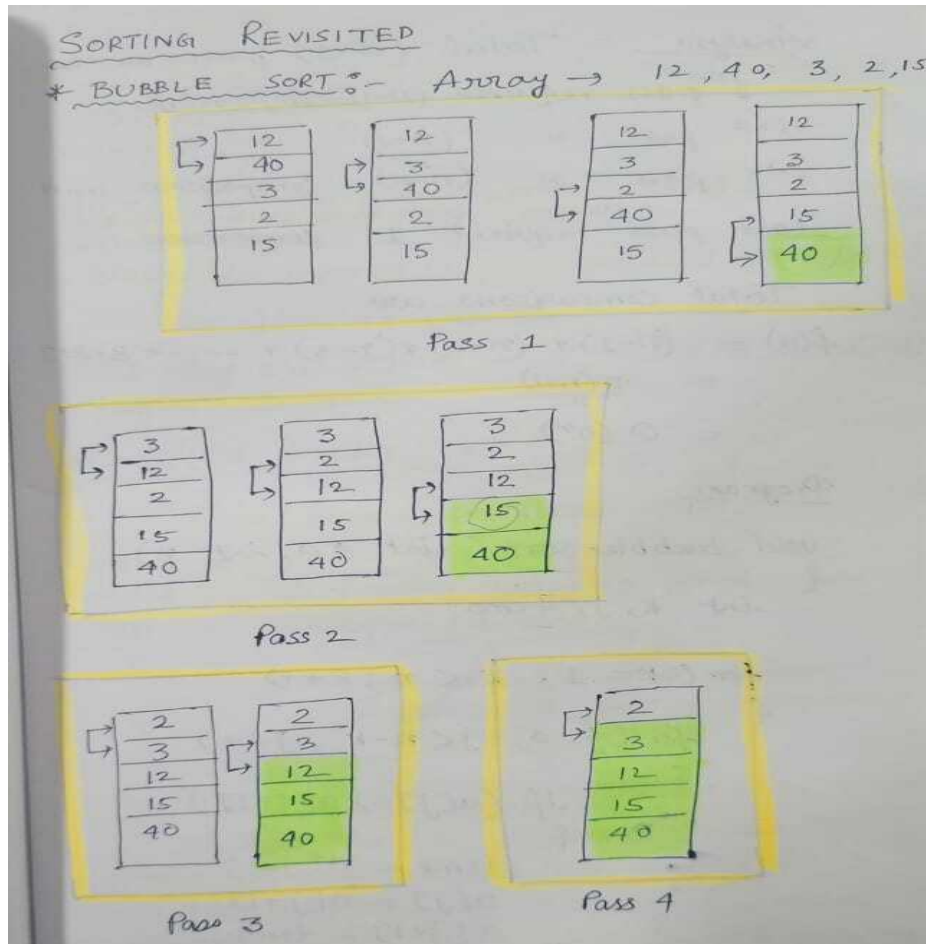 SORTING REVISITED
* BUBBLE SORT :- Array → 12, 40, 3, 2, 15
12
40
3
2
15
12
3
40
2
15
12
3
2
40
15
12
3
2
15
40
Pass 1
3
12
2
15
40
3
2
12
15
40
3
2
12
15
40
Pass 2
2
3
12
15
40
2
3
12
15
40
Pass 3
2
3
12
15
40
Pass 4